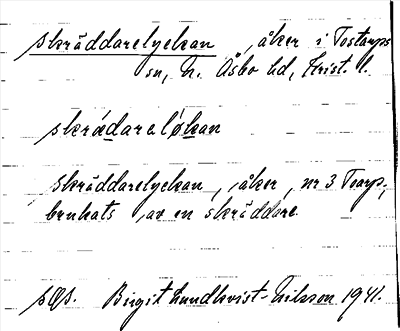 skräddarelyckan, åker i Tostarps
sn, N. Åsbo hd, Krist. l.
skrädarelökan
skräddarelyckan, åker, nr 3 Toarp,
brukats av en skräddare.
sgs. Birgit Lundkvist-Nilsson 1941.